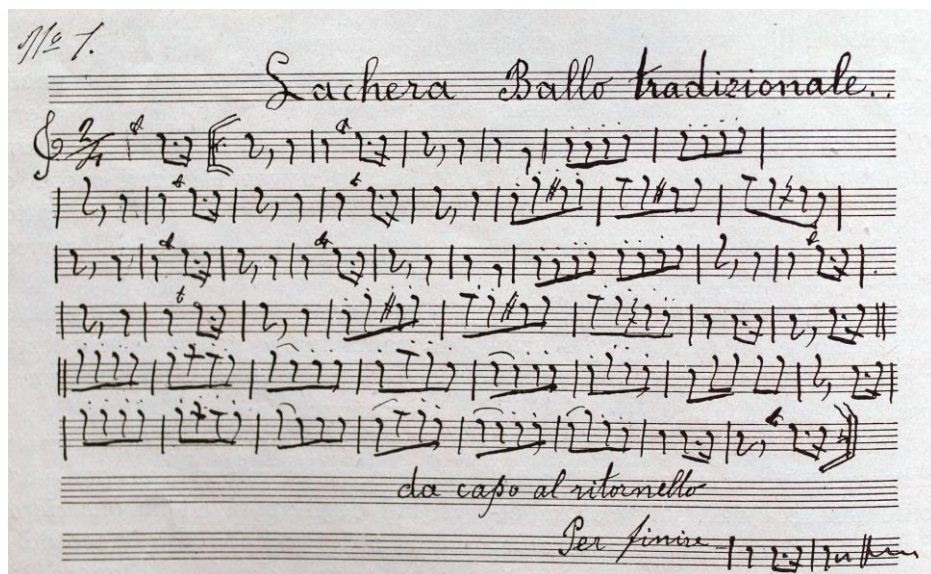 Nº 1.
Lachera Ballo tradizionale.
2/4
da capo al ritornello
Per finire